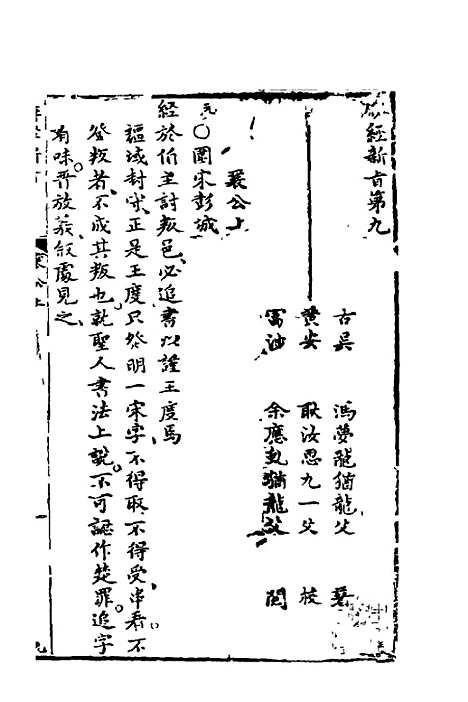 麟經新旨第九
古吳 馮夢龍猶龍父 著
黃安 耿汝思九一父 校
富沙 余應虬猶龍父 閱
襄公上
元 ○圍宋彭城
經於伯主討叛邑必追書以謹王度焉
疆域封守正是王度只發明一宋字不得取不得受串看不
登叛者不成其叛也就聖人書法上說不可認作楚罪追字
有味晉放義似處見之
襄公上
一